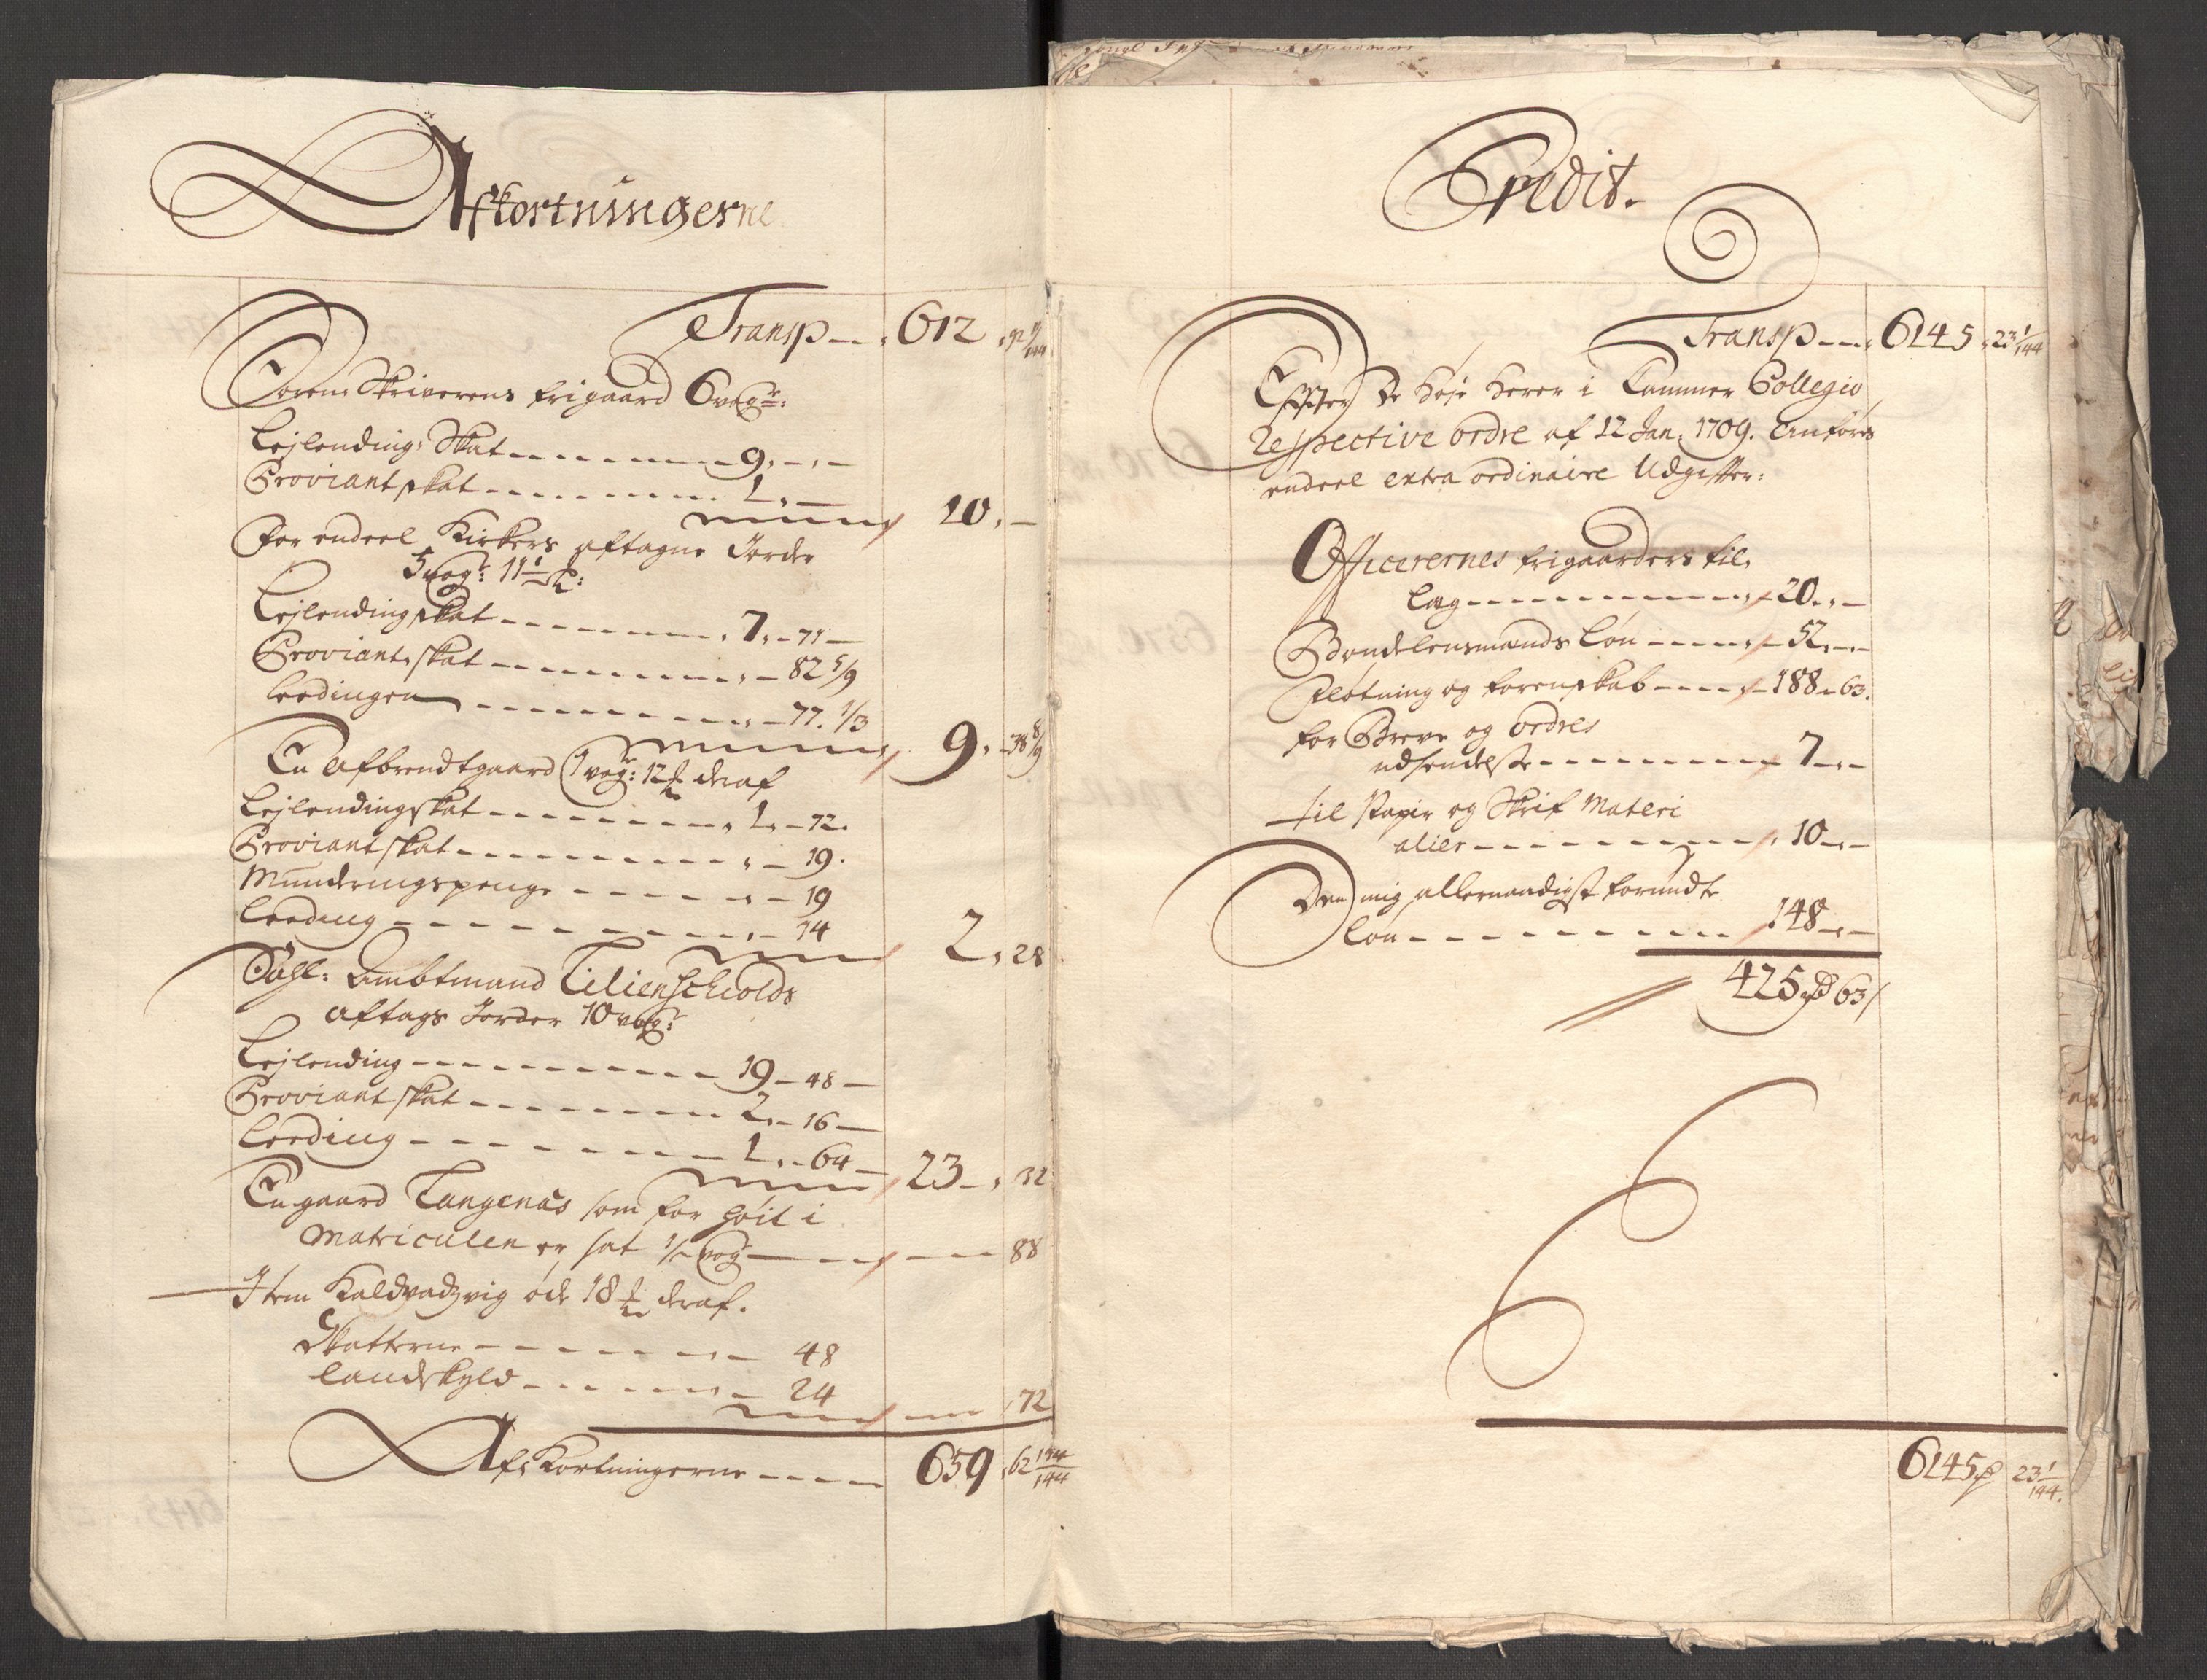 Afkortningerne
Transp 612 92
Sorenskriverens frigaard 6 vog:
Lejlending: Skat 9
Proviantskat 1
10
for endeel Kirkers aftagne Jorder
5 vog: 11
Lejlendingskat 7 - 71
Proviantskat 82 5/9
Leedingen 77 1/3
9 - 38 8/9
En afbrendt gaard 1 vog: 12 deraf
Lejlendingskat 1 - 72.
Proviantskat 19.
Munderingspenge 19
Leeding 14
2 28
Sahl: Ambtmand Lilienschiolds
aftags Jorder 10 vog:
Lejlending 19 - 48
Proviantskat 2 - 16
Leeding 1 - 64
23 32
En gaard Tangenæs som for høit i
Matriculen er sat 1/2 vog 88
Item Kaldvadzvig øde 18 deraf.
Skatterne 48
Landskyld 24
72
Afkortningerne 659 62 134/144
Credit.
Transp 6145 23 1/144
Effter De Høje Herer i Cammer Collegio
Respective ordre af 12 Jan: 1709. Anføres
endeel extra ordinaire Udgiffter:
Officerernes frigaarders til
læg 20
Bondelensmands Løn 52
Fløtning og forenskab 188 - 63.
for Breve og ordres
udsendelse 7
til Papir og Skrif Materi
alier 10
Den mig allernaadigst forundte
Løn 148
425 63
6145 23 1/144.